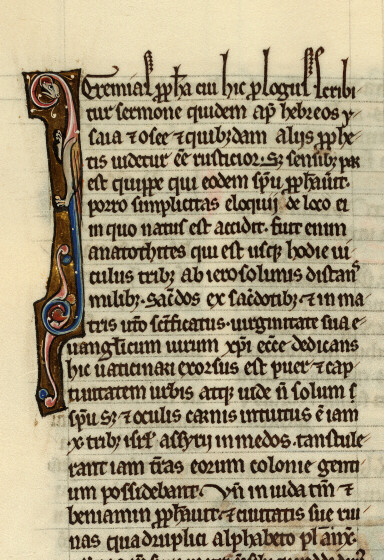 Ieremias ꝓph̄a cui hic ꝓlogus scribi
tur sermone quidem ap̄ hebreos y
saia ⁊ osee ⁊ quibꝫdam alijs ꝓphe
tis uidetur ēe rusticior. sꝫ sensibꝫ par
est quippe qui eodem sp̄u ꝓph̄auit.
porro simplicitas eloquij de loco ei
in quo natus est accidit. fuit enim
anatothites qui est usqꝫ hodie ui
culus tribꝫ ab ierosolimis distans
milibꝫ. sac̄dos ex sac̄dotibꝫ ⁊ in ma
tris ut̄o sc̄ificatus. uirginitate sua e
uanglīcum uirum xp̄i ecc̄e dedicans
hic uaticinari exorsus est puer ⁊ cap
tiuitatem urbis atqꝫ iude n̄ solum ī
sp̄u sꝫ ⁊ oculis carnis intuitus ē iam
x. tribꝫ isrl̄ assyrij in medos. transtule
rant iam t̄ras eorum colonie genti
um possidebant. Vn̄ in iuda tm̄ ⁊
beniamin ꝓph̄auit. ⁊ ciuitatis sue rui
nas quadruplici alphabeto pl̄anx̄.